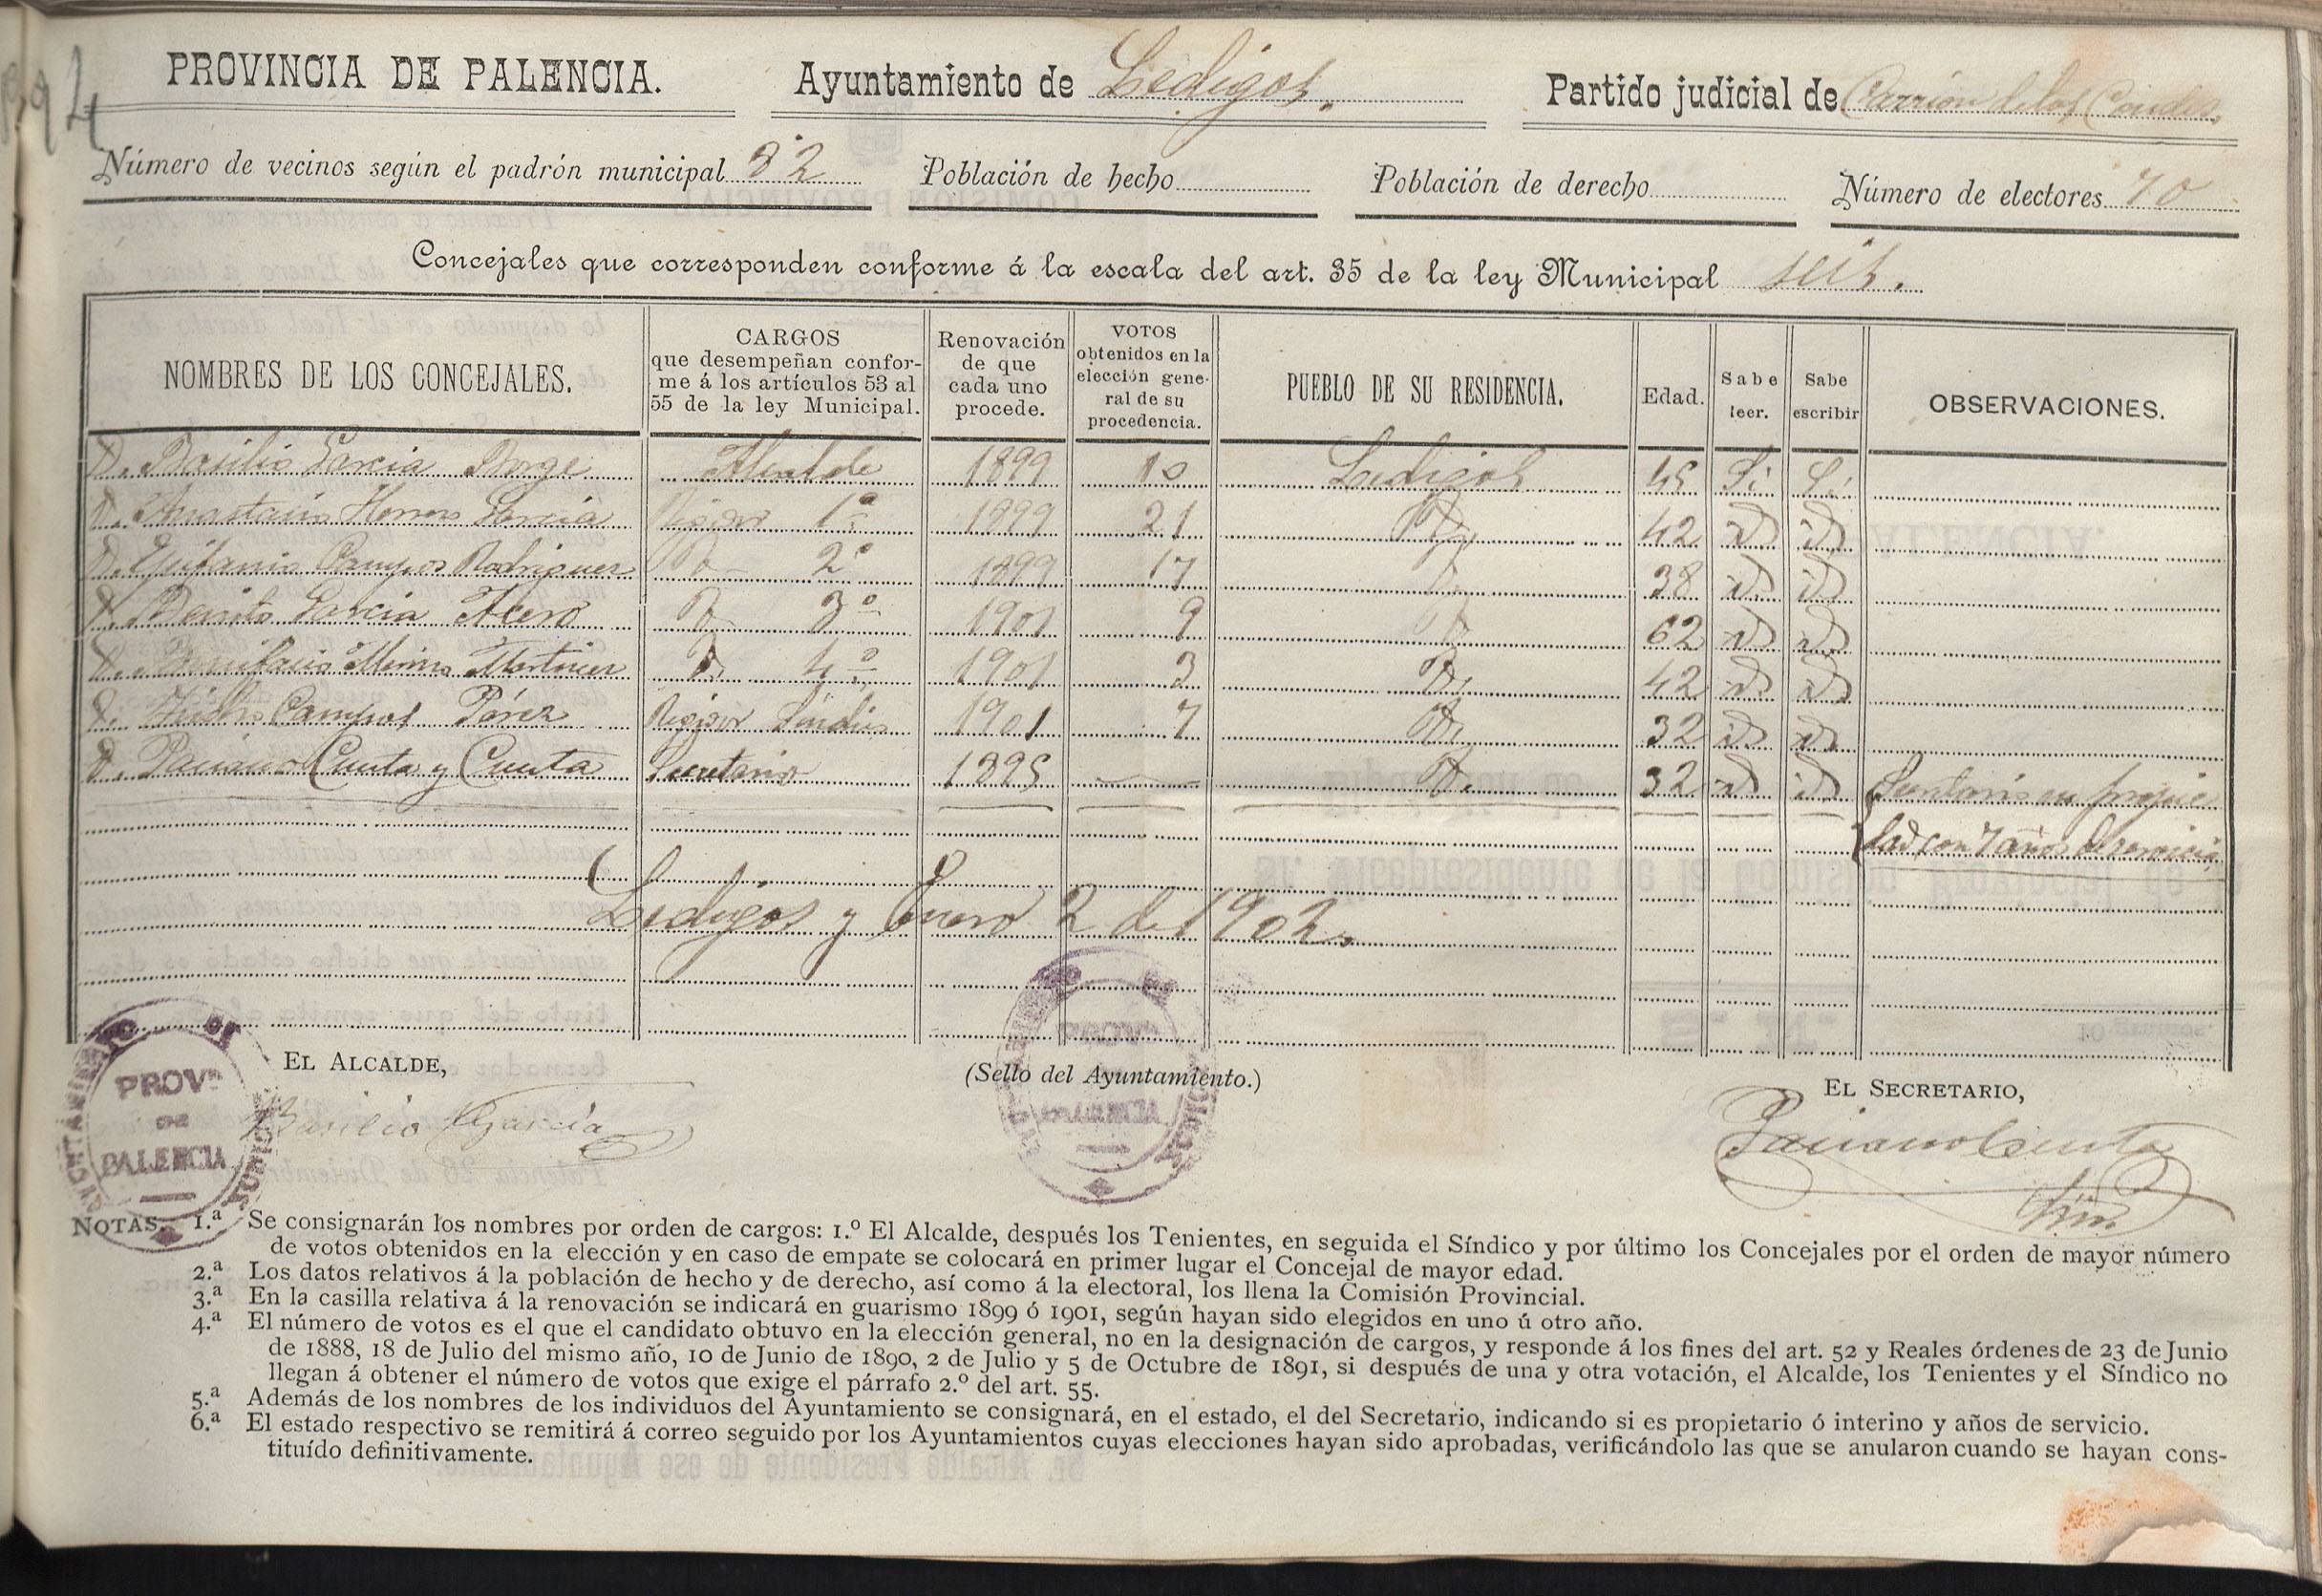 PROVINCIA DE PALENCIA. Ayuntamiento de Ledigos. Partido judicial de Carrión de los Condes.
Número de vecinos según el padrón municipal 82 Población de hecho Población de derecho Número de electores 70
Concejales que corresponden conforme á la escala del art. 35 de la ley Municipal seis.
NOMBRES DE LOS CONCEJALES.
CARGOS
que desempeñan confor-
me á los artículos 53 al
55 de la ley Municipal.
Renovación
de que
cada uno
procede.
VOTOS
obtenidos en la
elección gene-
ral de su
procedencia.
PUEBLO DE SU RESIDENCIA.
Edad.
Sabe
leer.
Sabe
escribir
OBSERVACIONES.
D. Basilio Garcia Borge Alcalde 1899 10 Ledigos 45 Si Si
D. Anastasio Herrero Garcia Regidor 1º 1899 21 D. 42 id id
D. Epifanio Campos Rodriguez D. 2º 1899 17 D. 38 id id
D. Benito Garcia Acero D. 3º 1901 9 D. 62 id id
D. Bonifacio Merino Martinez D. 4º 1901 3 D. 42 id id
D. Isidro Campos Pérez Regidor Síndico 1901 7 D. 32 id id
D. Paciano Cuesta y Cuesta Secretario 1895 D. 32 id id Secretario en propie
dad, con 7 años de servicio
Ledigos y Enero 2 de 1902.
EL ALCALDE,
(Sello del Ayuntamiento.)
EL SECRETARIO,
PROVª
DE
PALENCIA
Basilio Garcia
PROVª
PALENCIA
Paciano Cuesta
NOTAS. 1.ª Se consignarán los nombres por orden de cargos: 1.º El Alcalde, después los Tenientes, en seguida el Síndico y por último los Concejales por el orden de mayor número
de votos obtenidos en la elección y en caso de empate se colocará en primer lugar el Concejal de mayor edad.
2.ª Los datos relativos á la población de hecho y de derecho, así como á la electoral, los llena la Comisión Provincial.
3.ª En la casilla relativa á la renovación se indicará en guarismo 1899 ó 1901, según hayan sido elegidos en uno ú otro año.
4.ª El número de votos es el que el candidato obtuvo en la elección general, no en la designación de cargos, y responde á los fines del art. 52 y Reales órdenes de 23 de Junio
de 1888, 18 de Julio del mismo año, 10 de Junio de 1890, 2 de Julio y 5 de Octubre de 1891, si después de una y otra votación, el Alcalde, los Tenientes y el Síndico no
llegan á obtener el número de votos que exige el párrafo 2.º del art. 55.
5.ª Además de los nombres de los individuos del Ayuntamiento se consignará, en el estado, el del Secretario, indicando si es propietario ó interino y años de servicio.
6.ª El estado respectivo se remitirá á correo seguido por los Ayuntamientos cuyas elecciones hayan sido aprobadas, verificándolo las que se anularon cuando se hayan cons-
tituído definitivamente.